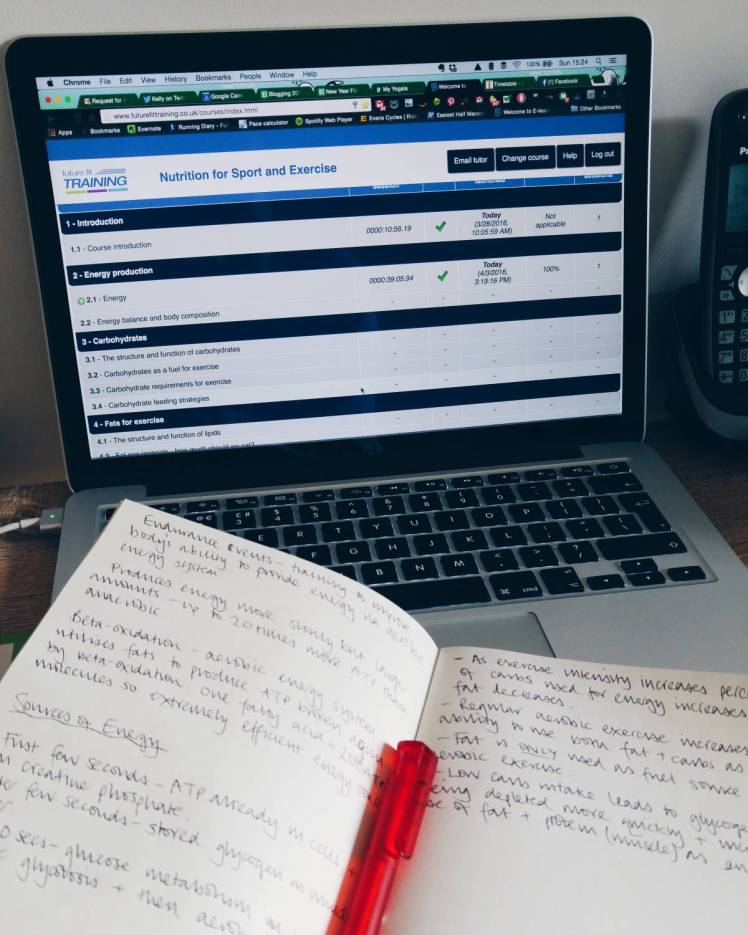 Chrome File Edit View History Bookmarks People Window Help 100% Sun 15:24
Request for Kelly on Twi Google Cale Blogging 20 New Year Fi My Yogais Welcome to Timetable (1) Facebook
www.futurefittraining.co.uk/courses/index.html
Apps Bookmarks Evernote Running Diary - Fu Pace calculator Spotify Web Player Evans Cycles | Ri Easiest Half Mara Welcome to E-lear Other Bookmarks
future fit
TRAINING
Nutrition for Sport and Exercise
Email tutor Change course Help Log out
1 - Introduction
1.1 - Course introduction 0000:10:56.19 Today (3/28/2016, 10:05:59 AM) Not applicable 1
2 - Energy production
2.1 - Energy 0000:39:05.94 Today (4/3/2016, 3:19:16 PM) 100% 1
2.2 - Energy balance and body composition - - - - -
3 - Carbohydrates
3.1 - The structure and function of carbohydrates - - - - -
3.2 - Carbohydrates as a fuel for exercise - - - - -
3.3 - Carbohydrate requirements for exercise - - - - -
3.4 - Carbohydrate feeding strategies - - - - -
4 - Fats for exercise
4.1 - The structure and function of lipids
Endurance events - training to improve
body's ability to provide energy via aerobic
energy system
Produces energy more slowly but larger
amounts - up to 20 times more ATP than
anaerobic
Beta-oxidation - aerobic energy system
utilises fats to produce ATP broken down
by beta-oxidation. One fatty acid =
molecules so extremely efficient energy
Sources of Energy
First few seconds - ATP already in cells +
creatine phosphate.
few seconds - stored glycogen in
secs - glucose metabolism in
glycolosis + then
- As exercise intensity increases perc
of carbs used for energy increases
fat decreases.
- Regular aerobic exercise increases
ability to use both fat + carbs as
- Fat is ONLY used as fuel source
aerobic exercise.
- Low carb intake leads to glycoge
being depleted more quickly +
use of fat + protein (muscle) as an